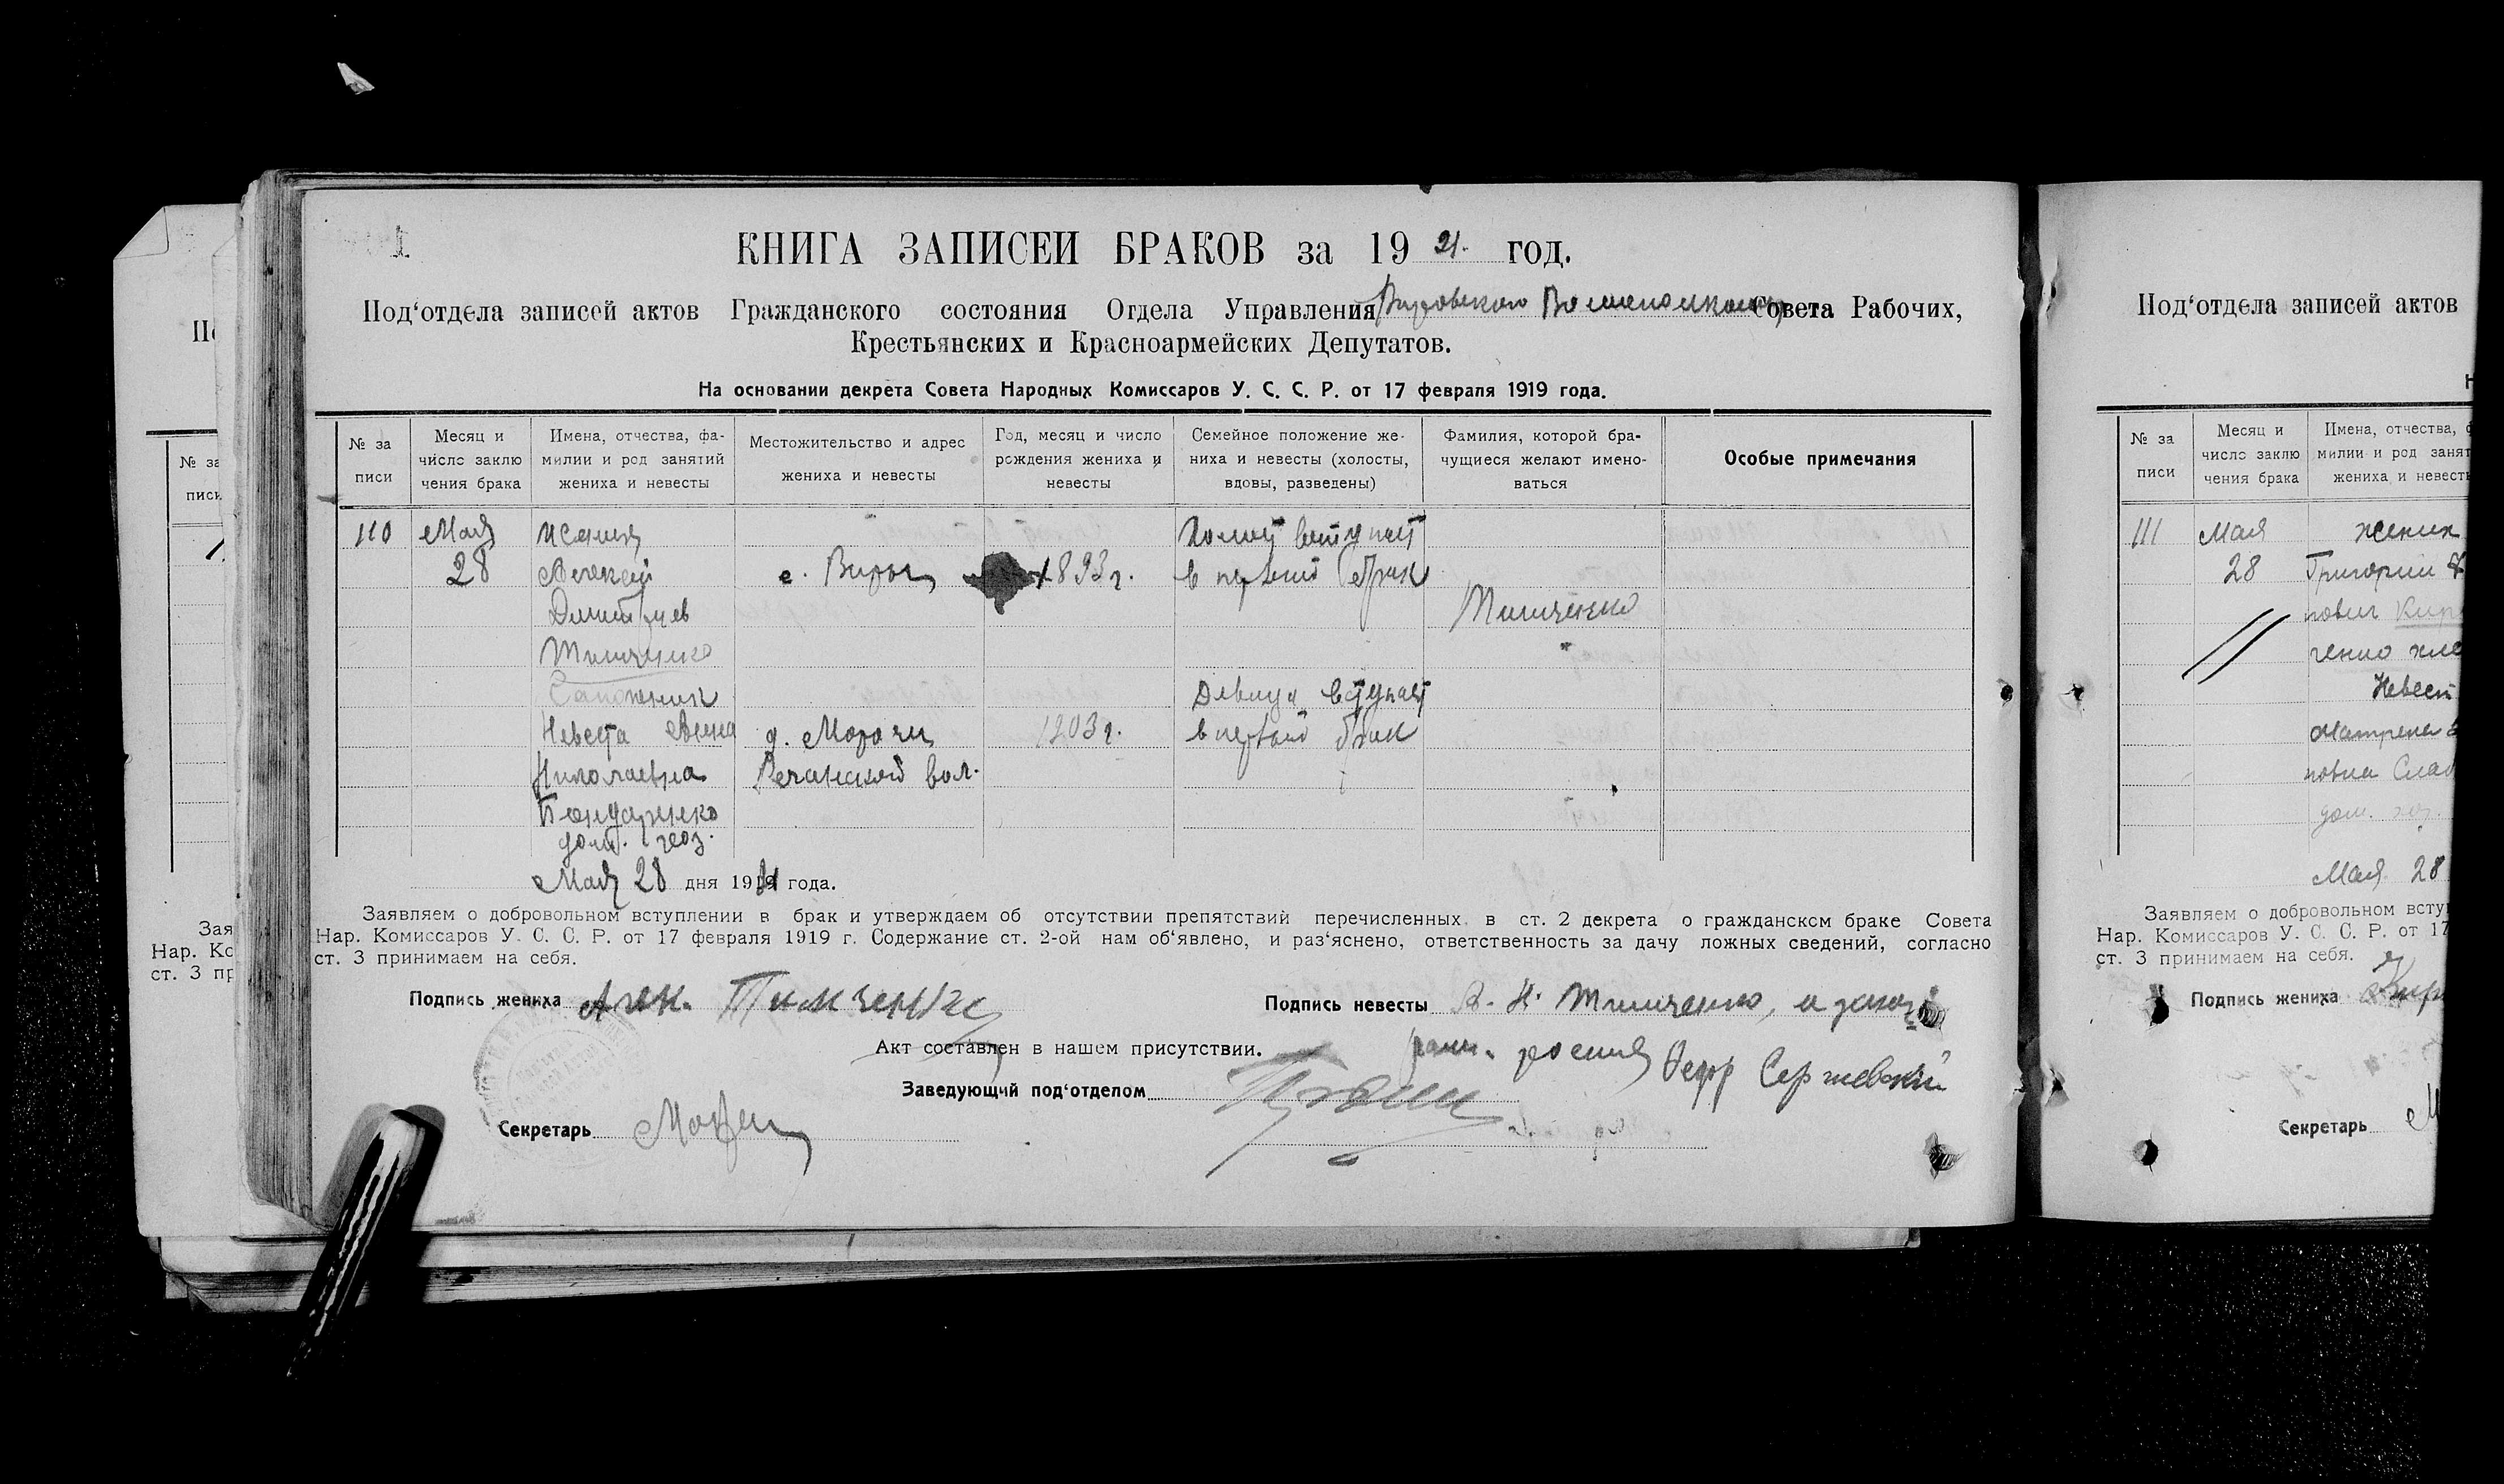 КНИГА ЗАПИСЕЙ БРАКОВ за 1921. год.
Под‘отдела записей актов Гражданского состояния Отдела Управления Вировского Волисполкома Совета Рабочих,
Крестьянских и Красноармейских Депутатов.
На основании декрета Совета Народных Комиссаров У. С. С. Р. от 17 февраля 1919 года.
№ за
писи
Месяц и
число заклю
чения брака
Имена, отчества, фа-
милии и род занятий
жениха и невесты
Местожительство и адрес
жениха и невесты
Год, месяц и число
рождения жениха и
невесты
Семейное положение же-
ниха и невесты (холосты,
вдовы, разведены)
Фамилия, которой бра-
чущиеся желают имено-
ваться
Особые примечания
110
Мая
28
Жених
Алексей
Димитриев
Тимченко
Сапожник
Невеста
Николаевна
Бондаренко
дом. хоз.
с. Виры
д. Морочи
Речанской вол.
1893 г.
1903 г.
Холост вступает
в первый брак
Девица вступает
в первый брак
Тимченко
Мая 28 дня 1921 года.
Заявляем о добровольном вступлении в брак и утверждаем об отсутствии препятствий перечисленных в ст. 2 декрета о гражданском браке Совета
Нар. Комиссаров У. С. С. Р. от 17 февраля 1919 г. Содержание ст. 2-ой нам об‘явлено, и раз‘яснено, ответственность за дачу ложных сведений, согласно
ст. 3 принимаем на себя.
Подпись жениха Алек. Тимченко
Подпись невесты Н. Тимченко, а
Акт составлен в нашем присутствии.
Заведующий под‘отделом
Секретарь
Под‘отдела записей актов
№ за
писи
Месяц и
число заклю
чения брака
Имена, отчества,
милии и род занят
жениха и невесты
111
Мая
28
жених
Григорий
Невест
Матрена
дом. хоз.
Мая 28
Заявляем о добровольном всту
Нар. Комиссаров У. С. С. Р. от 17
ст. 3 принимаем на себя.
Подпись жениха
Секретарь
№ за
писи
Зая
Нар. Ко
ст. 3 пр